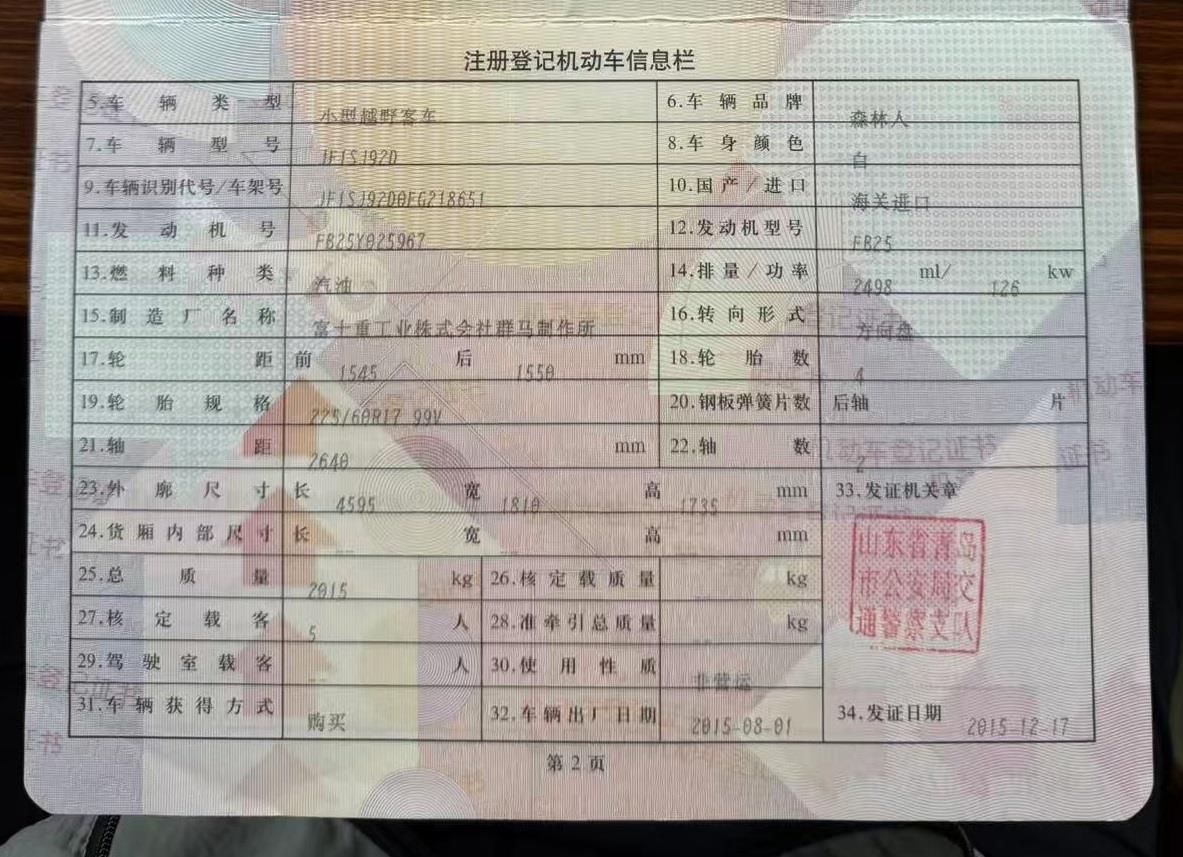 注册登记机动车信息栏
5.车辆类型 小型越野客车 6.车辆品牌 森林人
7.车辆型号 JF1SJ92D 8.车身颜色 白
9.车辆识别代号/车架号 JF1SJ92D0FG218651 10.国产/进口 海关进口
11.发动机号 FB25Y025967 12.发动机型号 FB25
13.燃料种类 汽油 14.排量/功率 2498 ml/ 126 kw
15.制造厂名称 富士重工业株式会社群马制作所 16.转向形式 方向盘
17.轮距 前 1545 后 1550 mm 18.轮胎数 4
19.轮胎规格 225/60R17 99V 20.钢板弹簧片数 后轴 片
21.轴距 2640 mm 22.轴数 2
23.外廓尺寸 长 4595 宽 1810 高 1735 mm 33.发证机关章
24.货厢内部尺寸 长 -- 宽 -- 高 mm
25.总质量 2015 kg 26.核定载质量 -- kg
27.核定载客 5 人 28.准牵引总质量 -- kg
29.驾驶室载客 -- 人 30.使用性质 非营运
31.车辆获得方式 购买 32.车辆出厂日期 2015-08-01 34.发证日期 2015-12-17
山东省青岛
市公安局交
通警察支队
第 2 页